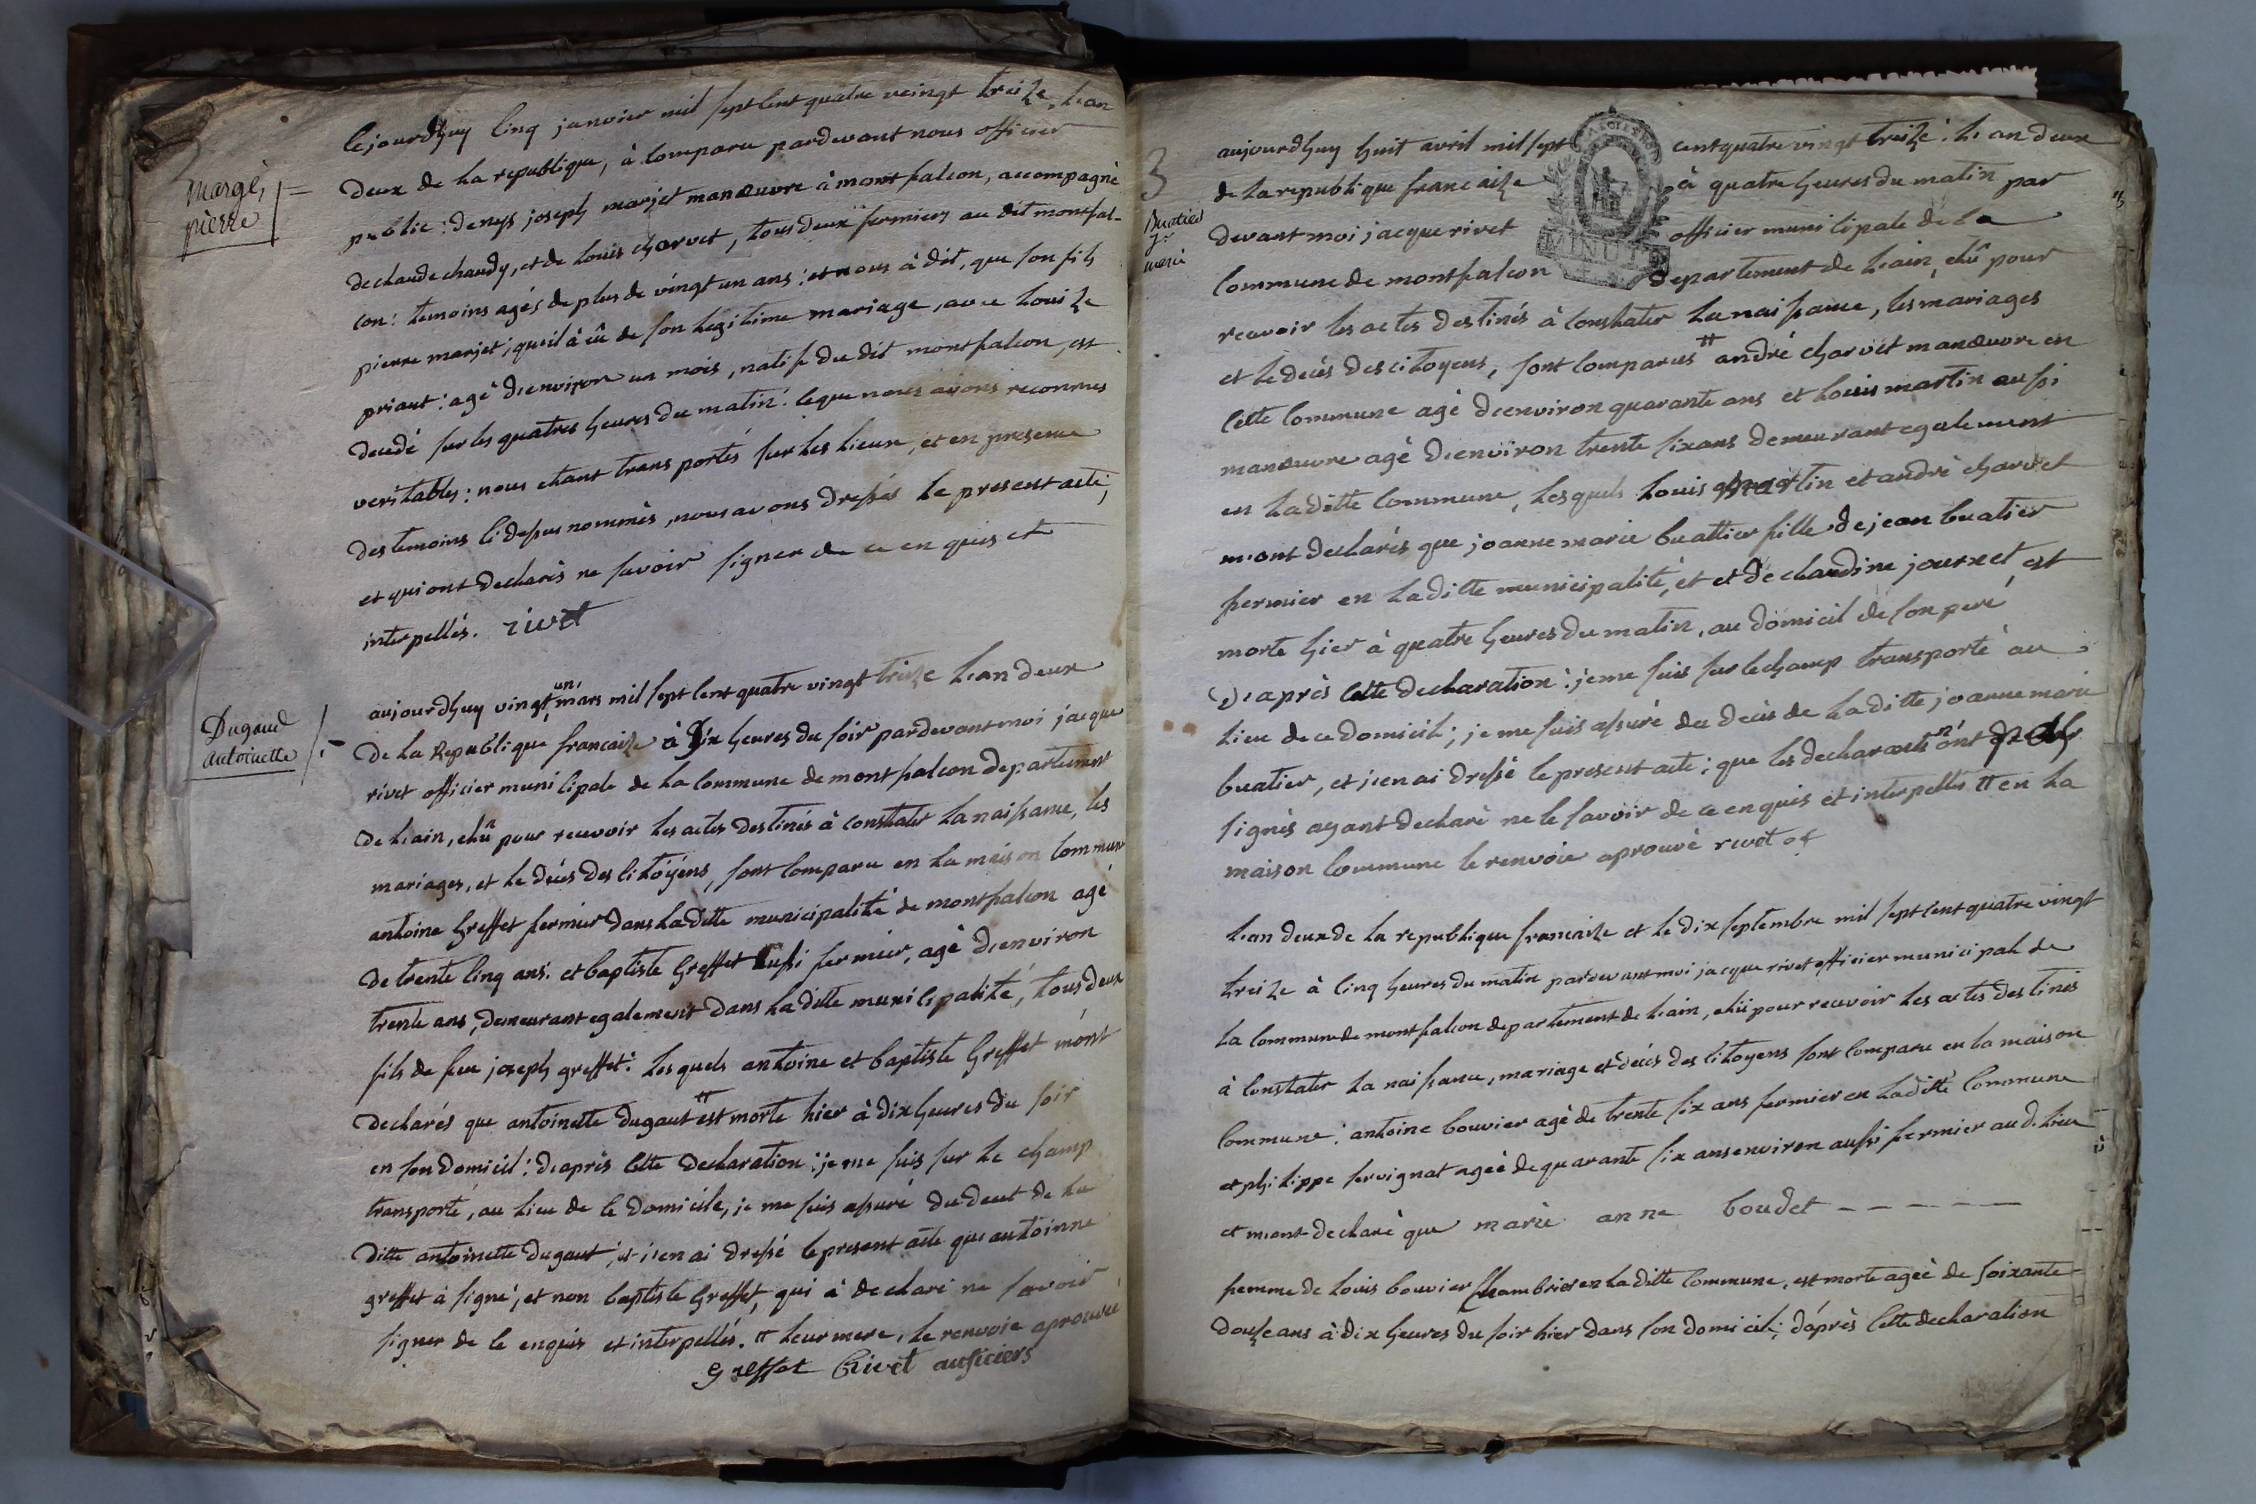 margé,
pierre
cejourdhuy cinq janvier mil sept cent quatre veingt treize, l'an
deux de la republique, à comparu pardevant nous officier
public: denys joseph marjet manœuvre à montfalcon, accompagnè
de claude chaudy, et de louis charvet, tous deux fermiers au dit montfal-
con: temoins agés de plus de vingt un ans; et nous à dit, que son fils
pierre marjet; qu'il à eû de son legitime mariage, avec louize
priaut: agé d'environ un mois, natif du dit montfalcon, est
decedé sur les quatres heures du matin: ceque nous avons reconnus
veritables; nous etant transportés sur les lieux, et en presence
des temoins ci dessus nommès, nous avons dressés le present acte;
et qui ont declarès ne savoir signer de ce en quis et
interpellés. rivet
Dugaud
antoinette
aujourdhuy vingt un mars mil sept cent quatre vingt treize l'an deux
de la republique francaize à dix heures du soir pardevant moi jacque
rivet officier municipale de la commune de montfalcon departement
de l'ain, elû pour recevoir les actes destinés à constater la naissance, les
mariages, et le dècès des citöyéns, sont comparu en la maison commune
antoine Greffet fermier dans la ditte municipalité de montfalcon agé
de trente cinq ans. et baptiste Greffet aussi fermier, agè d'environ
trente ans, demeurant egalement dans la ditte municipalité, tous deux
fils de feu joseph greffet: lesquels antoine et baptiste Greffet m'ont
declarés que antoinette dugaut # est morte hier à dix heures du soir
en son domicil: d'aprés cette declaration: je me suis sur le champ
transporté, au lieu de ce domicile, je me suis assuré du decet de la
ditte antoinette dugaut, et j'en ai dressé le present acte que antoinne
greffet à signé, et non baptiste Greffet, qui à declaré ne savoir
signer de ce enquis et interpellés. # leur mere, le renvoie aprouvé
greffet Rivet auficiers
3
Buatier
jne
marie
aujourdhuy huit avril mil sept cent quatre vingt treize: l'an deux
de la republique francaize à quatre heures du matin par
devant moi jacque rivet officier municipale de la
commune de montfalcon departement de l'ain, elû pour
recevoir les actes destinés à constater la naissance, les mariages
et le decés des citoyens, sont comparus # andré charvet manœuvre en
cette commune agè d'environ quarante ans et louis martin aussi
manœuvre agè d'environ trente six ans demeurant egalement
en la ditte commune, lesquels louis martin et andrè charvet
m'ont declarés que joanne marie buattier fille de jean buatier
fermier en la ditte municipalité, et et de claudine journet, est
morte hier à quatre heures du matin, au domicil de son peré
d'aprés cette declaration: je me suis sur le champ transporté au
lieu de ce domicil; je me suis assuré du decés de la ditte joanne marie
buatier, et j'en ai dressé le present acte; que les declarants n'ont
signès ayant declaré ne le savoir de ce enquis et interpellés # en la
maison commune le renvoie aprouvé rivet of
MINUTE
l'an deux de la republique francaize et le dix septembre mil sept cent quatre vingt
treize à cinq heures du matin pardevant moi jacque rivet officier municipale de
la commune de montfalcon departement de l'ain, elû pour recevoir les actes destinés
à constater la naissance, mariage et décés des citoyens sont comparu en la maison
commune: antoine bouvier agè de trente six ans fermier en la ditte commune
et philippe servignat ageé de quarante six ans environ aussi fermier au d. lieu
et m'ont declaré que marie anne boudet - - - - - -
femme de louis bouvier Chambrier en la ditte commune, est morte ageé de soixante
douze ans à dix heures du soir hier dans son domicil; d'aprés cette declaration